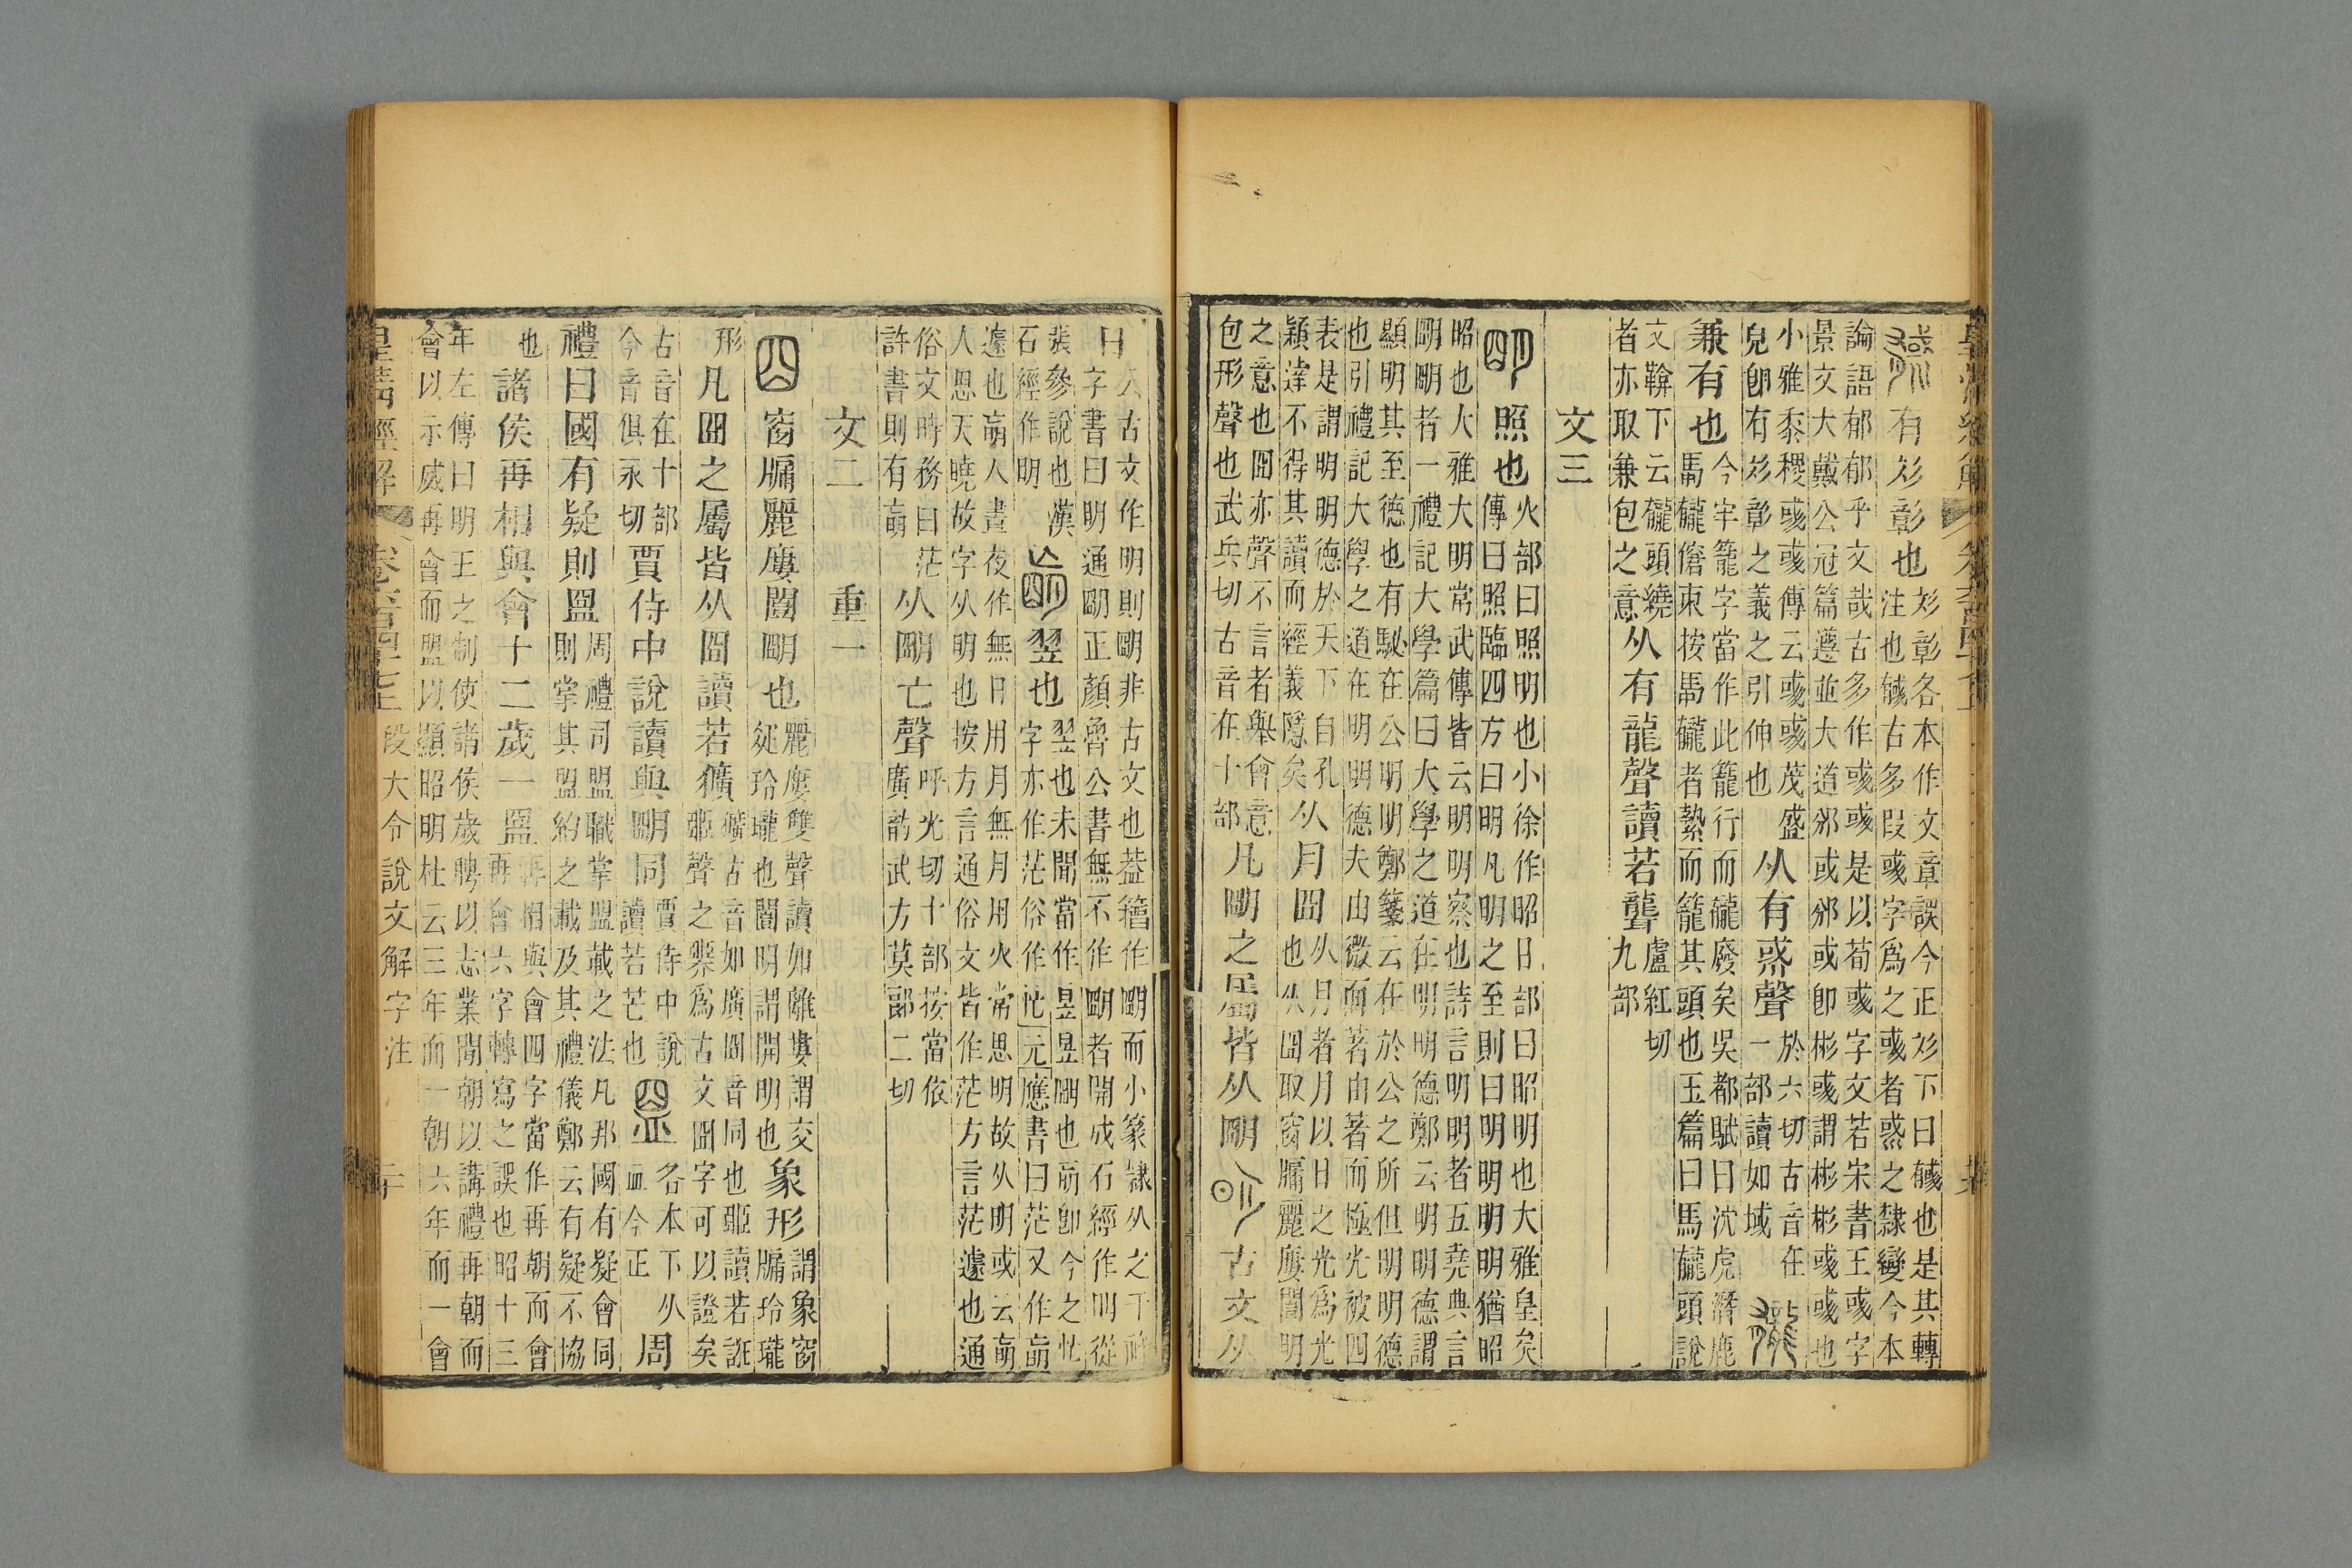 有彣彰也彣彰各本作文章誤今正彣下曰𢒰也是其轉注也𢒰古多叚彧字爲之彧者惑之隸變今本
論語郁郁乎文哉古多作彧彧是以荀彧字文若宋書王彧字景文大戴公冠篇遵並大道邠或邠或卽彬彧謂彬彬彧彧也
小雅黍稷彧彧傳云彧彧茂盛皃卽有彣彰之義之引伸也从有惑聲於六切古音在一部讀如域
兼有也今牢籠字當作此籠行而龓廢矣吳都賦曰沈虎潛鹿馽龓僒束按馽龓者縶而籠其頭也玉篇曰馬龓頭說
文鞥下云龓頭繞者亦取兼包之意从有龍聲讀若聾盧紅切九部
文三
朙照也火部曰照明也小徐作昭日部曰昭明也大雅皇矣傳曰照臨四方曰明凡明之至則曰明明明明猶昭
昭也大雅大明常武傳皆云明明察也詩言明明者五堯典言朙朙者一禮記大學篇曰大學之道在明明德鄭云明明德謂
顯明其至德也有駜在公明明鄭箋云在於公之所但明明德也引禮記大學之道在明明德夫由微而著由著而極光被四
表是謂明明德於天下自孔穎達不得其讀而經義隱矣从月囧从月者月以日之光爲光也从囧取窗牖麗廔闓明
之意也囧亦聲不言者舉會意包形聲也武兵切古音在十部凡朙之屬皆从朙古文从
日云古文作明則朙非古文也葢籒作朙而小篆隷从之干祿字書曰明通朙正顏魯公書無不作朙者開成石經作明從
張參說也漢石經作明翌也翌也未聞當作昱昱朙也萌卽今之忙字亦作茫俗作忙元應書曰茫又作萌
遽也萌人晝夜作無日用月無月用火常思明故从明或云萌人思天曉故字从明也按方言通俗文皆作茫方言茫遽也通
俗文時務曰茫許書則有萌从朙亡聲呼光切十部按當依廣韵武方莫郞二切
文二 重一
囧窗牖麗廔闓朙也麗廔雙聲讀如離婁謂交延玲瓏也闓明謂開明也象形謂象窗牖玲瓏
形凡囧之屬皆从囧讀若獷獷古音如廣囧音同也臦讀若誑臦聲之臩爲古文囧字可以證矣
古音在十部今音俱永切賈侍中說讀與朙同賈侍中說讀若芒也盟各本下从血今正周
禮曰國有疑則盟周禮司盟職掌盟載之法凡邦國有疑會同則掌其盟約之載及其禮儀鄭云有疑不協
也諸侯再相與會十二歲一盟再相與會四字當作再朝而會再會六字轉寫之誤也昭十三
年左傳曰明王之制使諸侯歲聘以志業閒朝以講禮再朝而會以示威再會而盟以顯昭明杜云三年而一朝六年而一會
皇淸經解 卷六百四十七上 段大令說文解字注